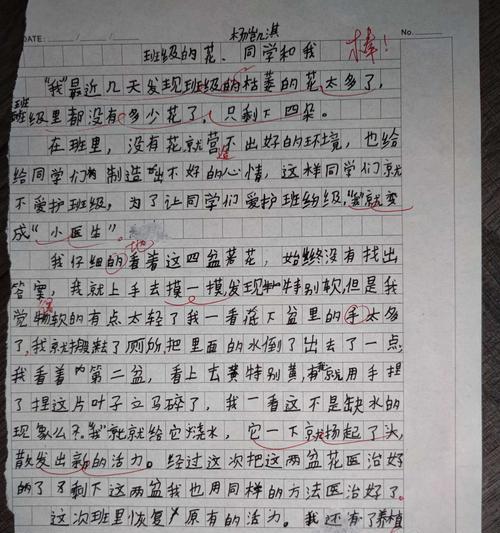 DATE: / /
杨凯淇
No.
棒!
班级的花、同学和我
"我"最近几天发现班级的枯萎的花,太多了,
班级里都没有多少花了,只剩下四朵。
在班里,没有花就营造不出好的环境,也给
给同学们制造出不好的心情,这样同学们就
不爱护班级,为了让同学们爱护班级,"我"就变
成"小医生"。
地
我仔细的看着这四盆花,始终没有找出
答案,我就上手去摸一摸,发现特别软,但是我
觉软的有点太轻了我一看花下盆里的手太多
了,我就搬了厕所,把里面的水倒了出去了一点,
我看着第二盆,看上去黄特别黄,就用手捏
了捏这片叶子立马碎了,我一看这不是缺水的
现象么?"我"就给它浇水,它一下就扬起了头,
散发出新的活力。经过这次把这两盆花医治好
的了剩下这两盆我也用同样的方法医治好了。
这次班里恢复原有的活力。我还有了养植